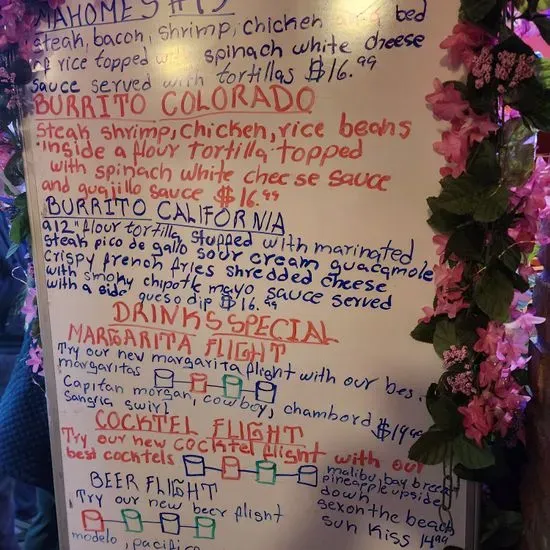 MAHOMES #15
steak, bacon, shrimp, chicken and a bed
of rice topped with spinach white cheese
sauce served with tortillas $16.99
BURRITO COLORADO
steak shrimp, chicken, rice beans
inside a flour tortilla topped
with spinach white cheese sauce
and guajillo sauce $16.99
BURRITO CALIFORNIA
a 12" flour tortilla stupped with marinated
steak pico de gallo sour cream guacamole
crispy french fries shredded cheese
with smoky chipotle mayo sauce served
with a side queso dip $16.99
DRINKS SPECIAL
MARGARITA FLIGHT
Try our new margarita flight with our bes
margaritas
Capitan morgan, cowboy, chambord $19.99
sangria swirl
COCKTEL FLIGHT
Try our new cocktel flight with our
best cocktels
malibu bay breeze
pineapple upside
down
sex on the beach
sun kiss 14.99
BEER FLIGHT
Try our new beer flisht
modelo, pacifico